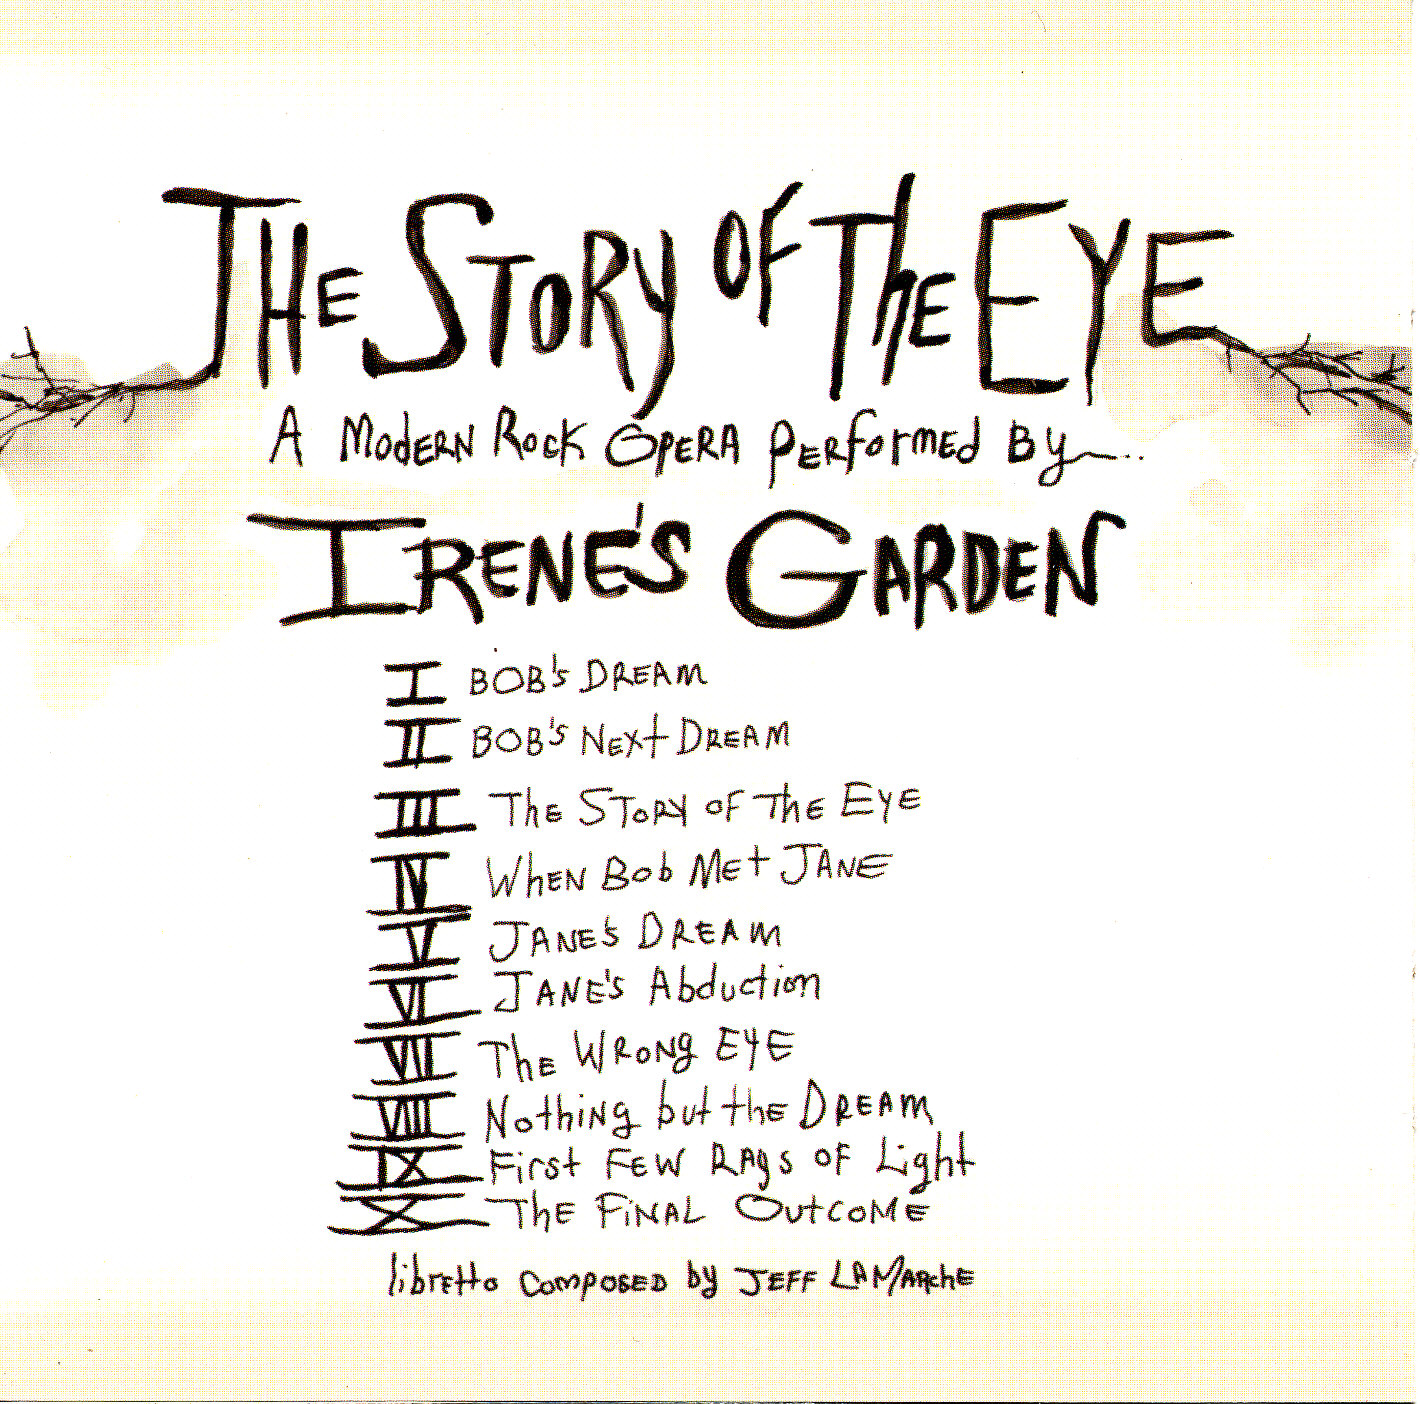 THE STORY OF THE EYE
A MODERN ROCK OPERA PERFORMED BY...
IRENE'S GARDEN
I BOB'S DREAM
II BOB'S NEXT DREAM
III The STORY OF The EYE
IV WHEN BOB MET JANE
V JANE'S DREAM
VI JANE'S Abduction
VII The WRONG EYE
VIII Nothing but the DREAM
IX First FEW RAYS OF Light
X THE FINAL OUTCOME
libretto COMPOSED by JEFF LAMARChE